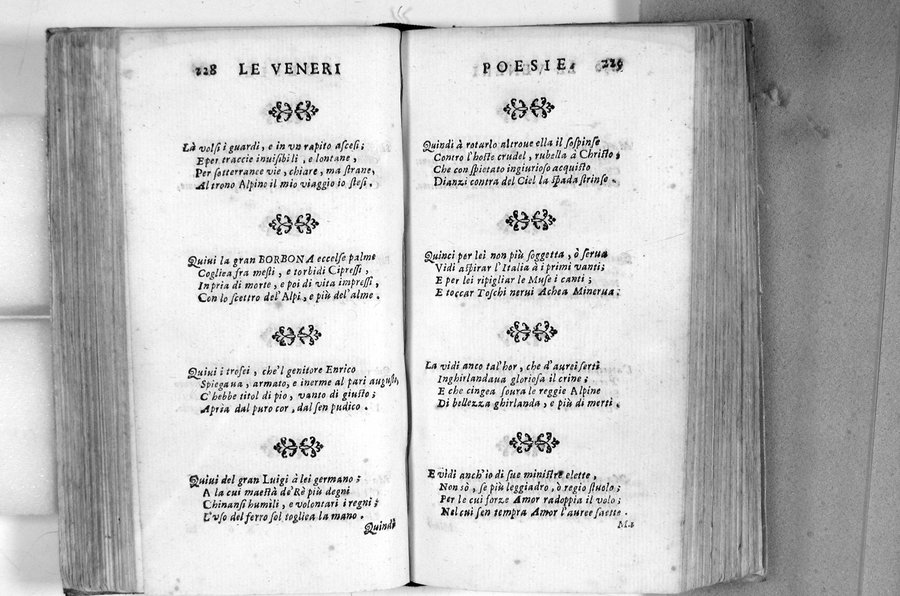 228 LE VENERI
Là volsi i guardi, e in vn rapito ascesi;
Eper traccie inuisibili, e lontane,
Per sotterrance vie, chiare, ma strane,
Al trono Alpino il mio viaggio io stesi.
Quiui la gran BORBONA eccelse palme
Coglica fra mesti, e torbidi Cipressi,
In pria di morte, e poi di vita impressi,
Con lo scettro del'Alpi, e più del'alme.
Quiui i trofei, che'l genitore Enrico
Spiegaua, armato, e inerme al pari augusto,
C'hebbe titol di pio, vanto di giusto;
Apria dal puro cor, dal sen pudico.
Quiui del gran Luigi à lei germano;
A la cui maestà de'Rè più degni
Chinansi humili, e volontari i regni;
L'vso del ferro sol toglica la mano.
Quindi
POESIE. 229
Quindi à rotarlo altroue ella il sospinse
Contro l'hoste crudel, rubella à Christo;
Che con spietato ingiurioso acquisto
Dianzi contra del Ciel la spada strinse.
Quinci per lei non più soggetta, ò serua
Vidi aspirar l'Italia à i primi vanti;
E per lei ripigliar le Muse i canti;
E toccar Toschi nerui Achea Minerua;
La vidi anco tal'hor, che d'aurei serti
Inghirlandaua gloriosa il crine;
E che cingea soura le reggie Alpine
Di bellezza ghirlanda, e più di merti.
E vidi anch'io di sue ministre elette,
Non sò, se più leggiadro, ò regio stuolo;
Per le cui forze Amor radoppia il volo;
Nel cui sen tempra Amor l'auree saette.
Ma